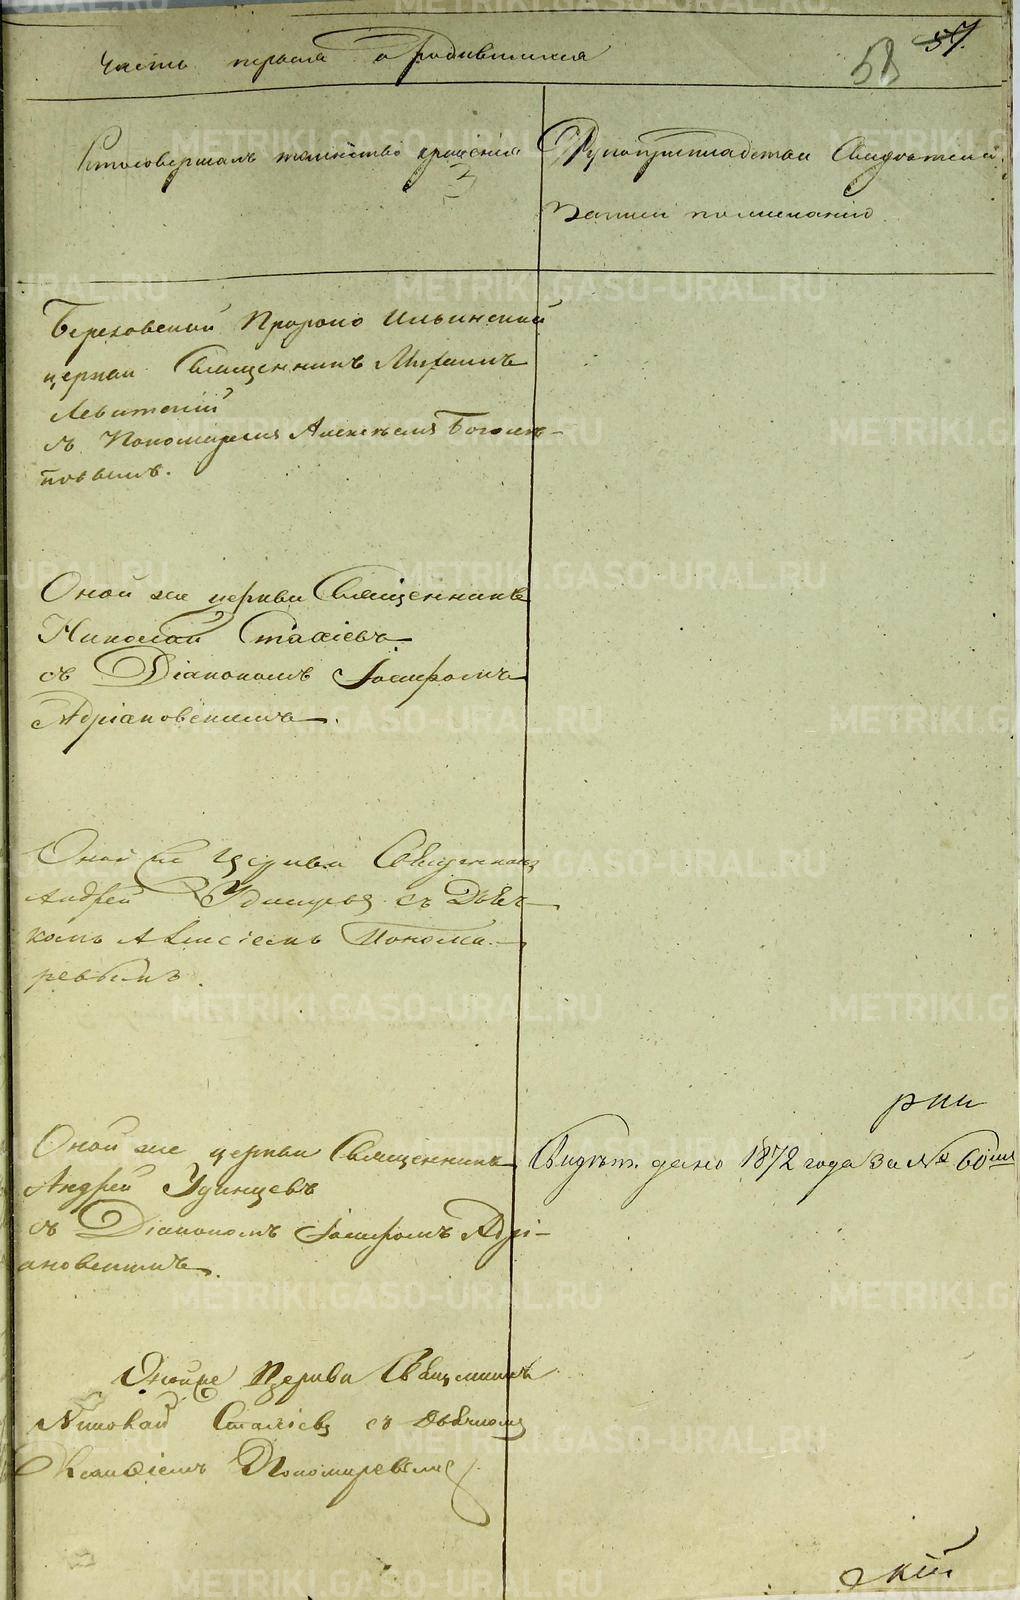 Часть первая о родившихся
58 57.
Кто совершалъ таинство крещенія
Рукоприкладство Свидѣтелей
записи по желанію
Березовской Пророко Ильинской
церкви Священникъ Михаилъ
Левитскій
съ Пономаремъ Алексѣемъ Боголѣ-
повымъ.
Оной же церкви Священникъ
Николай Стахіевъ
съ Діакономъ Іосифомъ
Адріановскимъ.
Оной же Церкви Священникъ
Андрей Удинцевъ съ Дьяч-
комъ Алексіемъ Понома-
ревымъ.
Оной же церкви Священникъ
Андрей Удинцевъ
съ Діакономъ Іосифомъ Адрі-
ановскимъ.
Свидѣт. дано 1872 года за № 60
Оной же Церкви Священникъ
Николай Стахіевъ съ Дьячкомъ
Пономаревымъ
METRIKI.GASO-URAL.RU